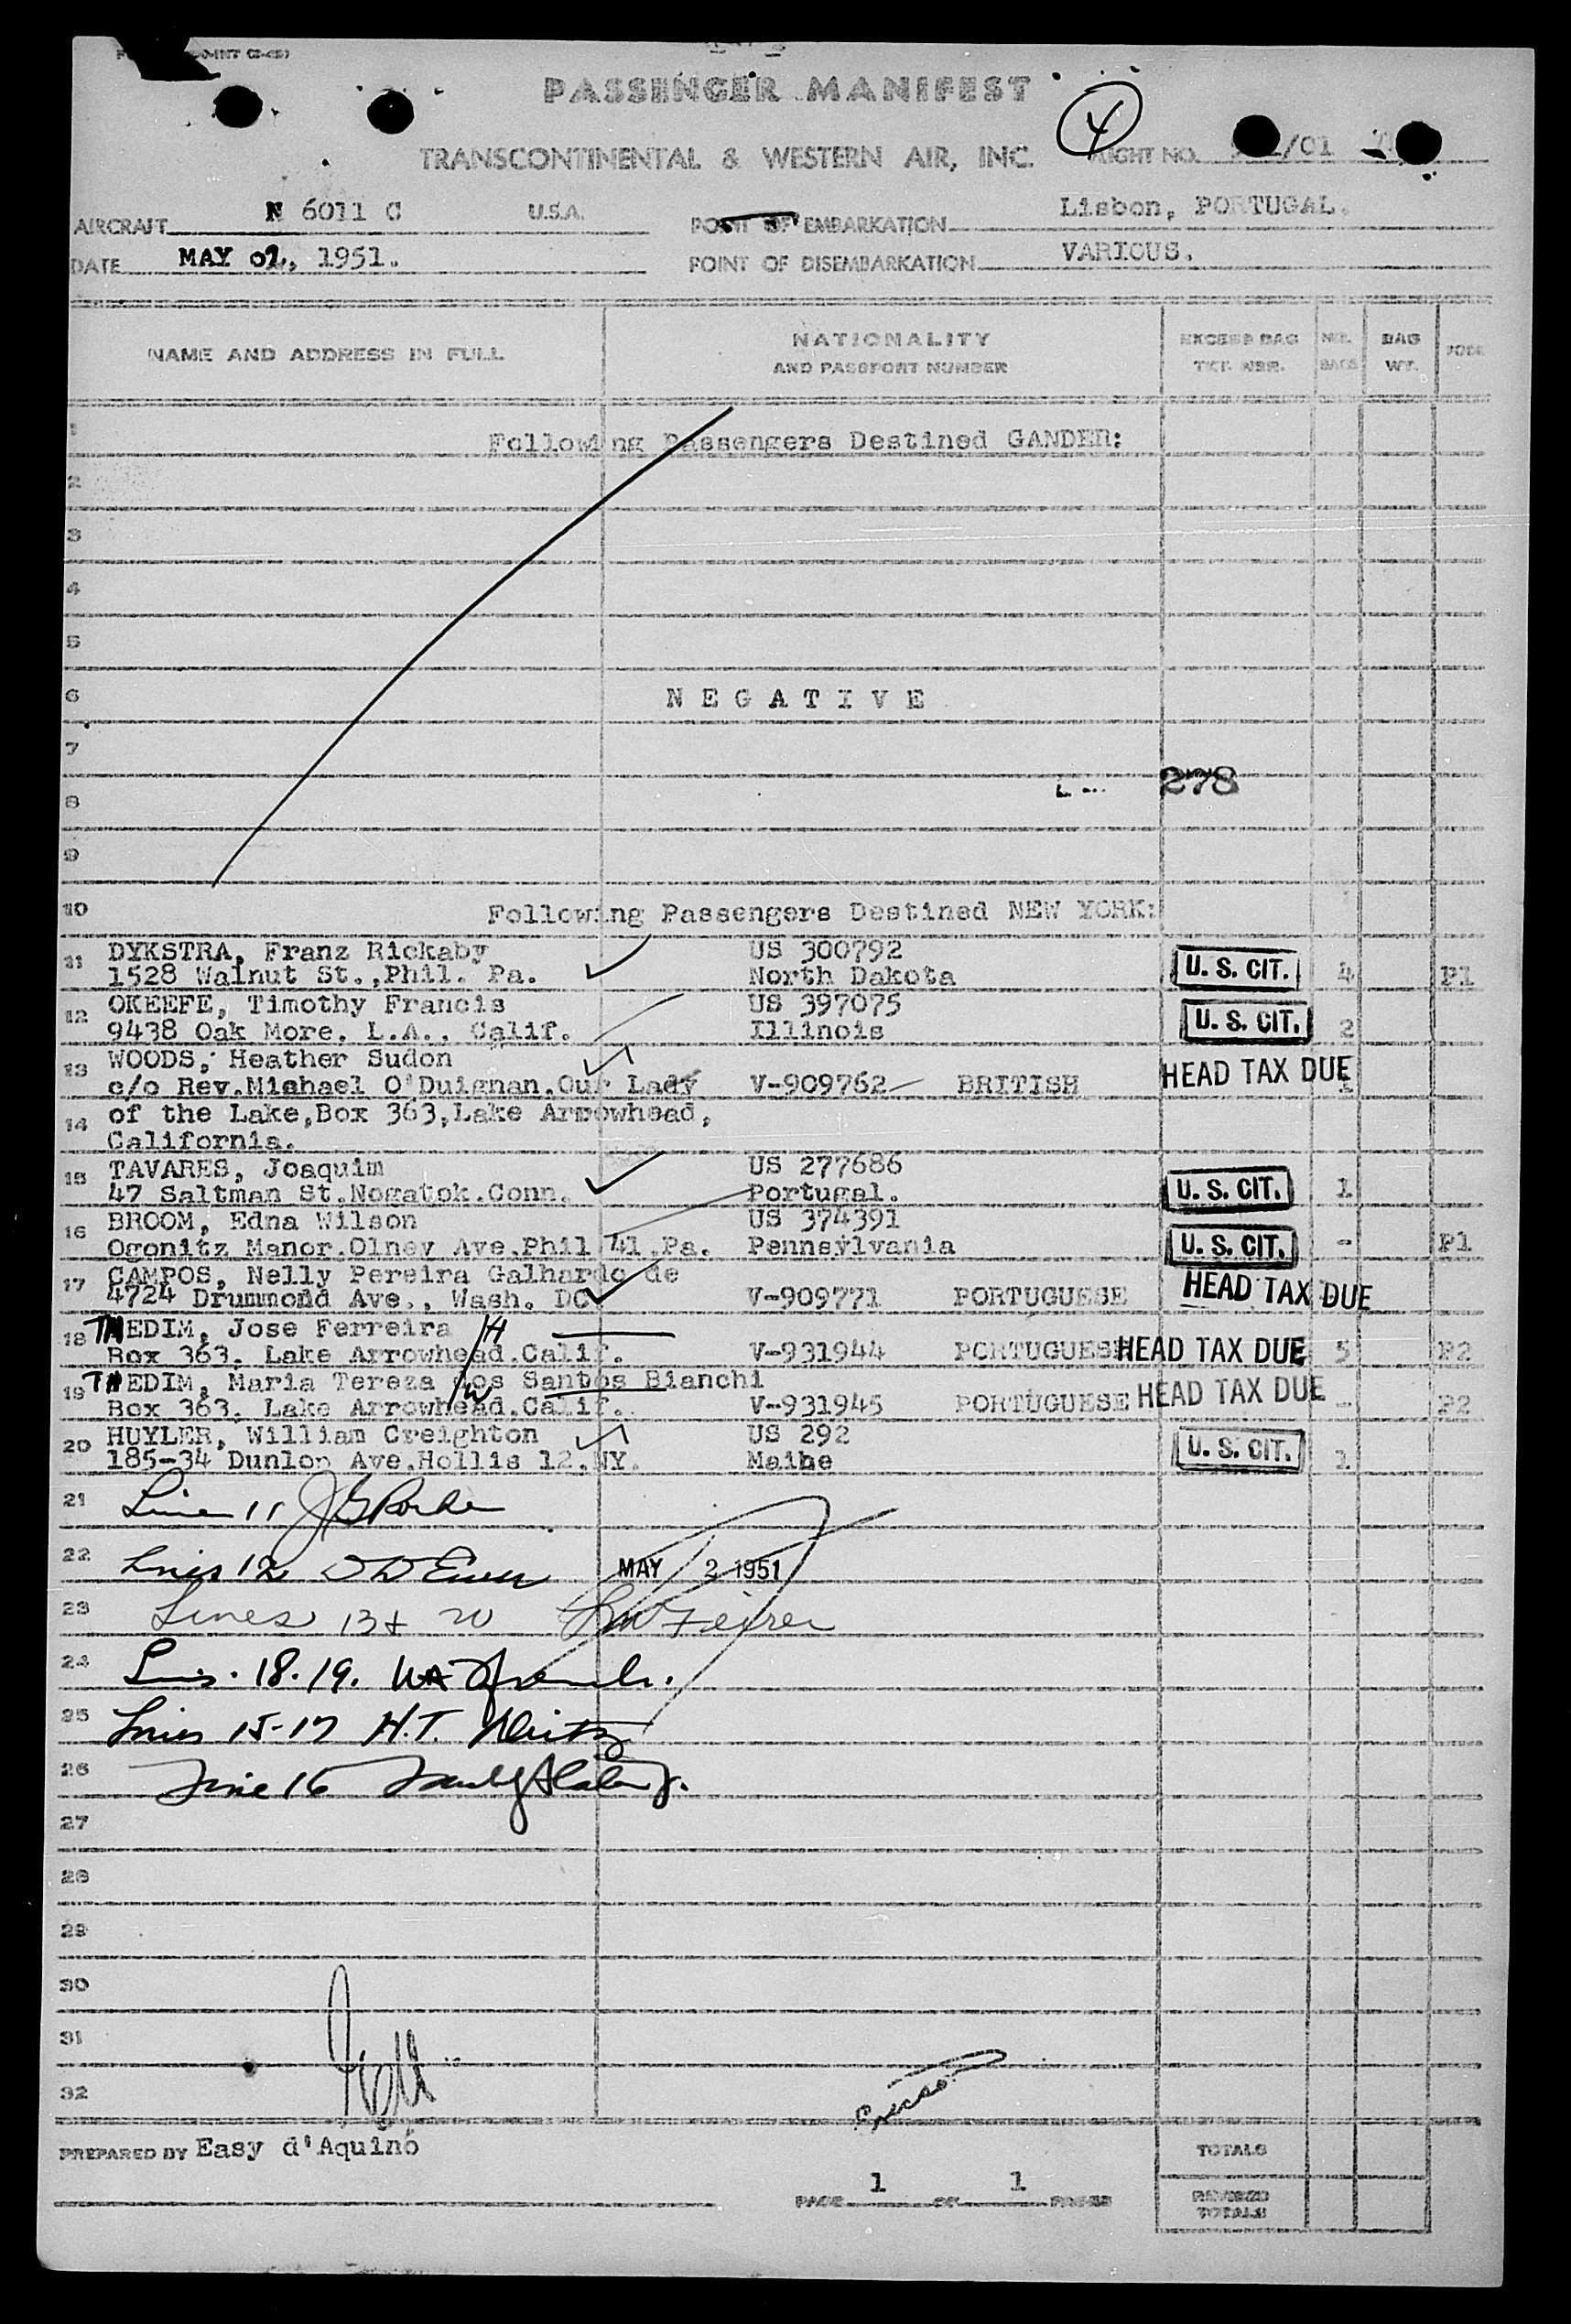 PASSENGER MANIFEST
TRANSCONTINENTAL & WESTERN AIR, INC.
4
FLIGHT NO. /01
AIRCRAFT N 6011 C U.S.A.
POINT OF EMBARKATION Lisbon, PORTUGAL.
DATE MAY 02, 1951.
POINT OF DISEMBARKATION VARIOUS.
NAME AND ADDRESS IN FULL
NATIONALITY
AND PASSPORT NUMBER
EXCESS BAG
TKT. NBR.
NBR.
BAGS
BAG
WT.
1
Following Passengers Destined GANDER:
2
3
4
5
6
N E G A T I V E
7
278
8
9
10
Following Passengers Destined NEW YORK:
11 DYKSTRA, Franz Rickaby US 300792
1528 Walnut St.,Phil. Pa. North Dakota U. S. CIT. 4 P1
12 OKEEFE, Timothy Francis US 397075
9438 Oak More, L.A., Calif. Illinois U. S. CIT. 2
13 WOODS, Heather Sudon HEAD TAX DUE
c/o Rev.Miahael O'Duignan,Our Lady V-909762 BRITISH 1
14 of the Lake,Box 363,Lake Arrowhead,
California.
15 TAVARES, Joaquim US 277686
47 Saltman St.Nogatok.Conn. Portugal. U. S. CIT. 1
16 BROOM, Edna Wilson US 374391
Ogonitz Manor.Olney Ave.Phil 41.Pa. Pennsylvania U. S. CIT. - P1
17 CAMPOS, Nelly Pereira Galhardo de HEAD TAX DUE
4724 Drummond Ave., Wash. DC V-909771 PORTUGUESE
18 THEDIM, Jose Ferreira H
Box 363. Lake Arrowhead.Calif. V-931944 PORTUGUESE HEAD TAX DUE 5 P2
19 THEDIM, Maria Tereza dos Santos Bianchi HEAD TAX DUE
W
Box 363. Lake Arrowhead.Calif. V-931945 PORTUGUESE - P2
20 HUYLER, William Creighton US 292
185-34 Dunlop Ave.Hollis 12.NY. Maine U. S. CIT. 1
21 Line 11
22 Lines 12 MAY 2 1951
23 Lines 13 + 20
24 Lines 18.19.
25 Lines 15-17 H.T.
26 Line 16
27
28
29
30
31
32
PREPARED BY Easy d'Aquino
TOTALS
PAGE 1 OF 1 PAGES
REVISED
TOTALS